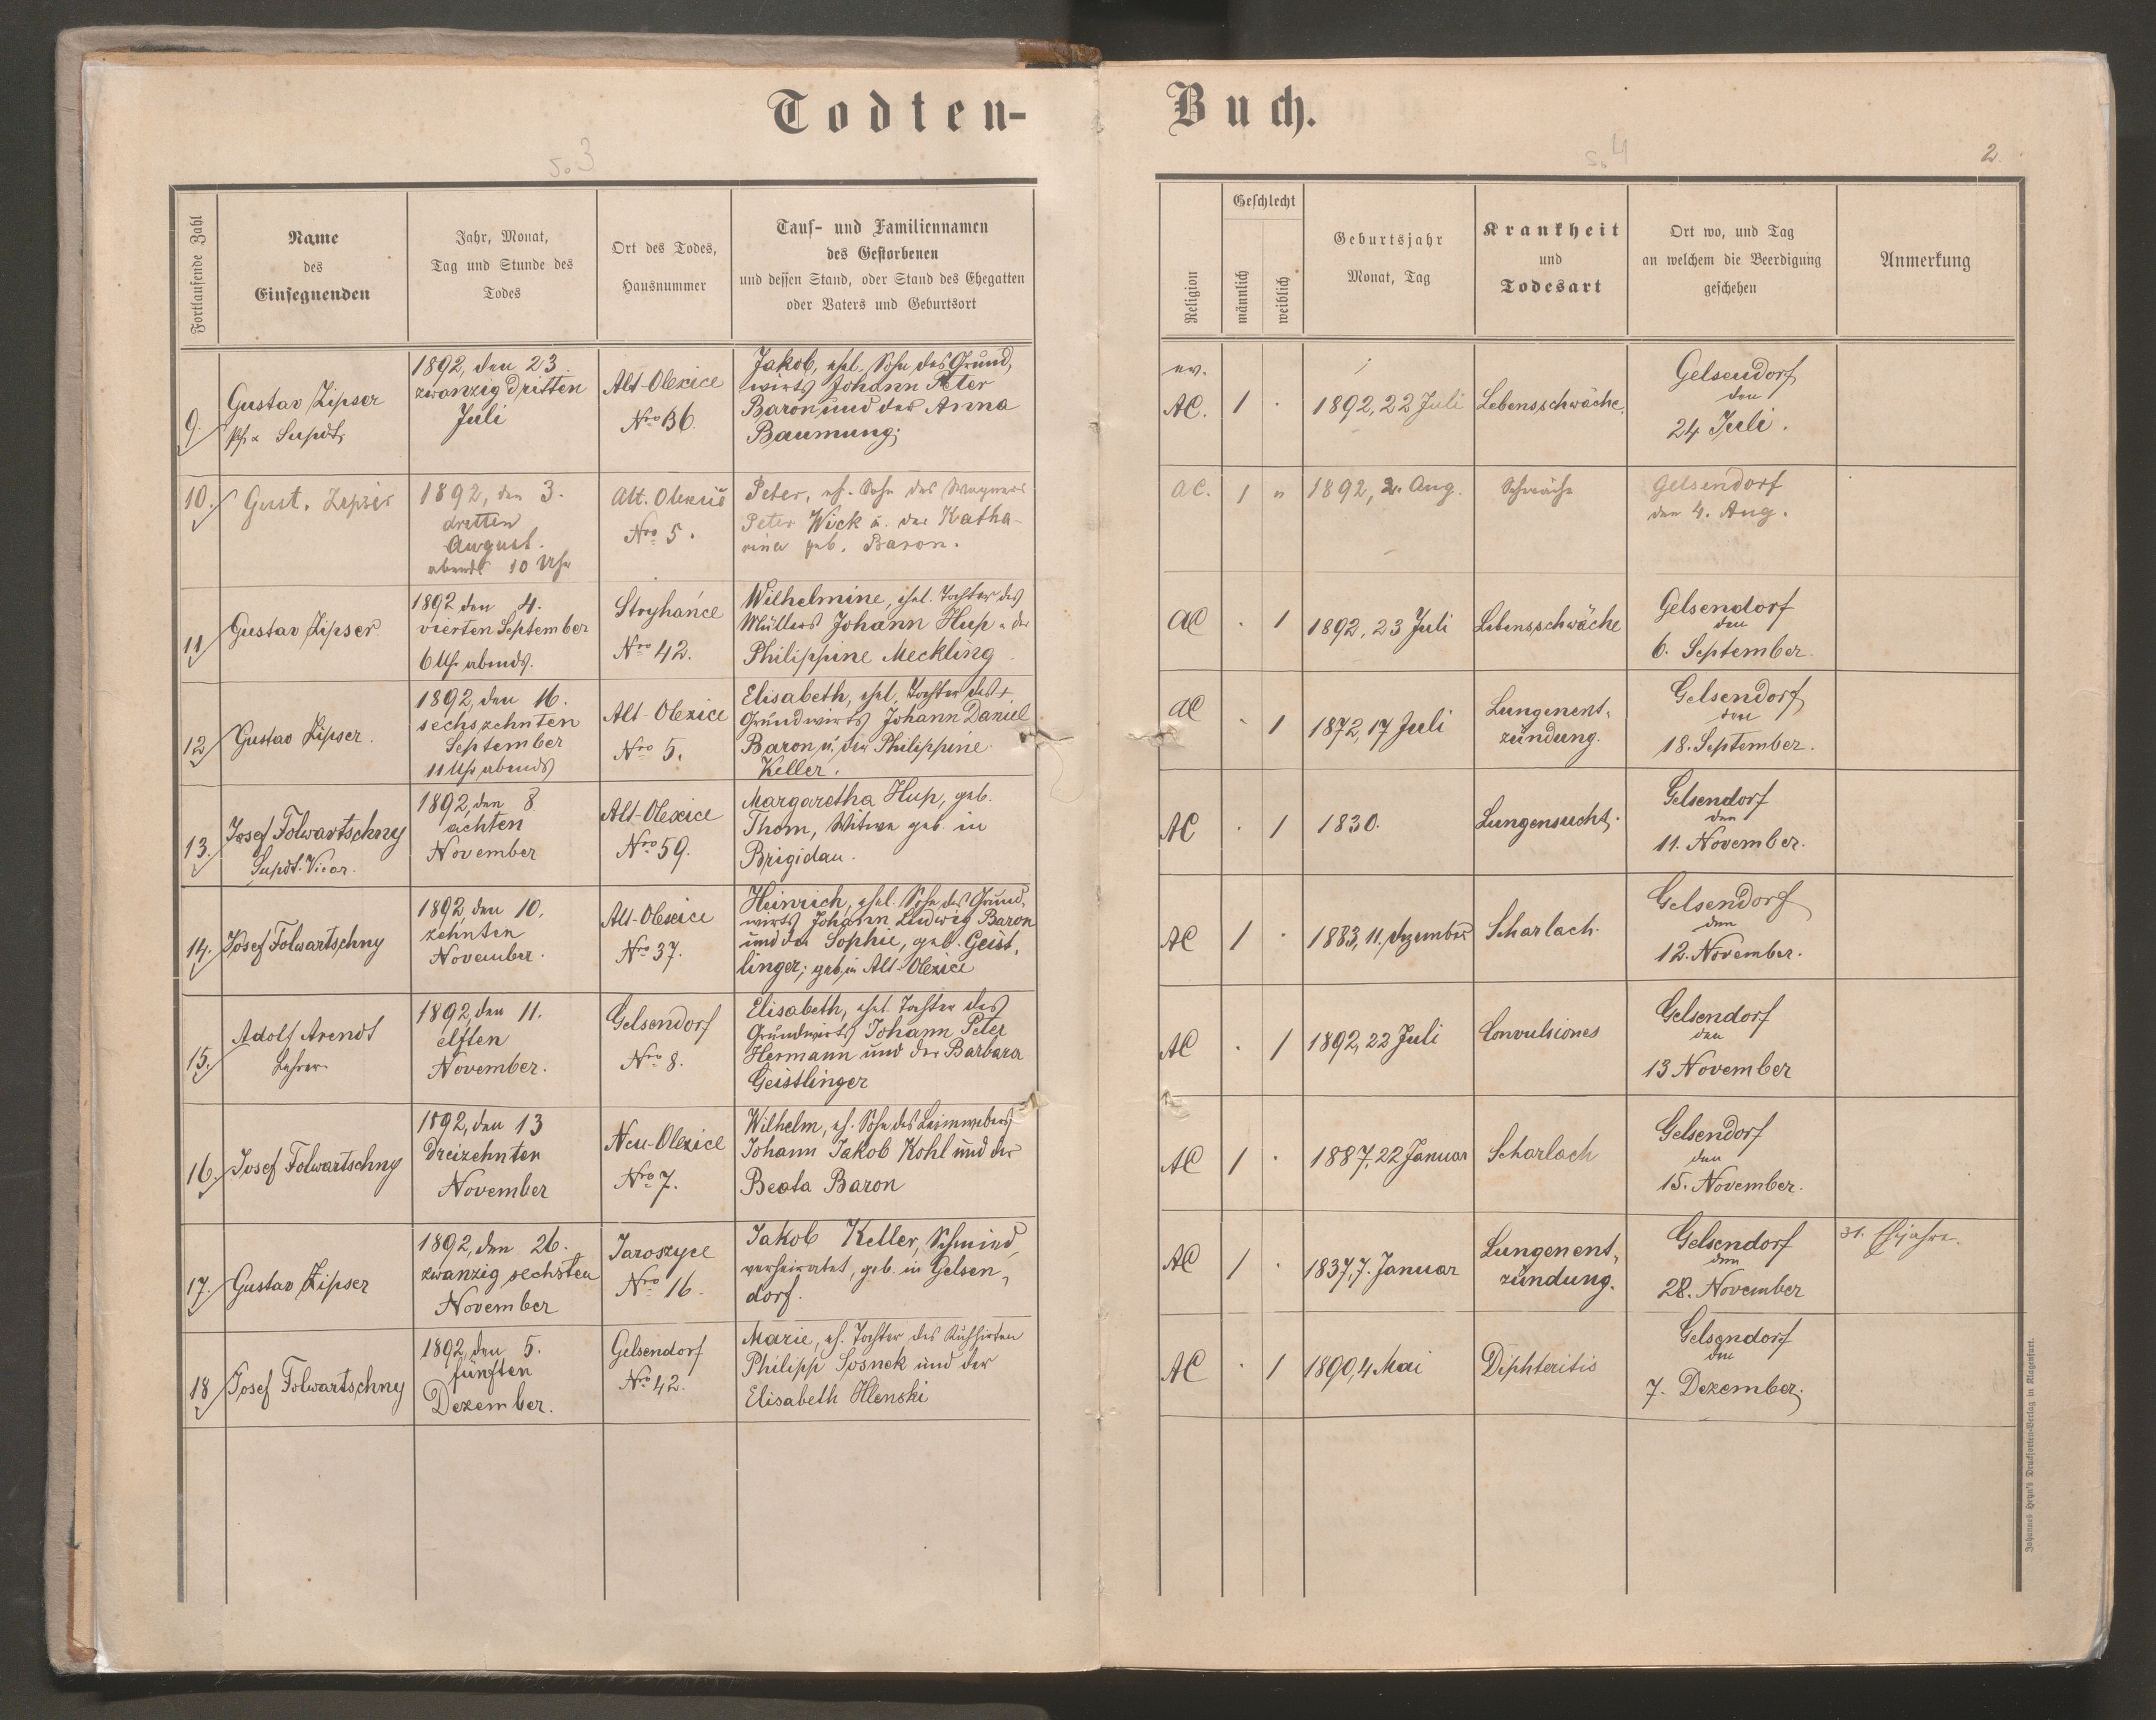 Todten-
Buch.
S. 3
S. 4
2
Fortlaufende Zahl
Name
des
Einsegnenden
Jahr, Monat,
Tag und Stunde des
Todes
Ort des Todes,
Hausnummer
Tauf- und Familiennamen
des Gestorbenen
und dessen Stand, oder Stand des Ehegatten
oder Vaters und Geburtsort
Religion
Geschlecht
männlich
weiblich
Geburtsjahr
Monat, Tag
Krankheit
und
Todesart
Ort wo, und Tag
an welchem die Beerdigung
geschehen
Anmerkung
9.
Gustav Zipser
Supdt.
1892, den 23.
zwanzig dritten
Juli
Alt-Olexice
Nro 36.
Jakob, ehel. Sohn des Grund-
wirts Johann Peter
Baron und der Anna
Baumung;
ev.
AC.
1
.
1892, 22 Juli
Lebensschwäche.
Gelsendorf
den
24 Juli.
10.
Gust. Zipser
1892, den 3.
dritten
August.
abends 10 Uhr
Alt. Olexice
Nro 5.
Peter, eh. Sohn des Wagners
Peter Wick u. der Katha-
rina geb. Baron.
AC.
1
"
1892, 2. Aug.
Schwäche
Gelsendorf
den 4. Aug.
11
Gustav Zipser
1892 den 4.
vierten September
6 Uhr abends.
Stryhańce
Nro 42.
Wilhelmine, ehel. Tochter des
Müllers Johann Hup u. der
Philippine Meckling
AC
.
1
1892, 23 Juli
Lebensschwäche
Gelsendorf
den
6. September.
12
Gustav Zipser.
1892, den 16.
sechszehnten
September
11 Uhr abends
Alt-Olexice
Nro 5.
Elisabeth, ehel. Tochter des +
Grundwirts Johann Daniel
Baron u. der Philippine
Keller.
AC
.
1
1872, 17 Juli
Lungenent-
zündung.
Gelsendorf
den
18. September.
13.
Josef Folwartschny
Supdt. Vicar.
1892, den 8
achten
November
Alt-Olexice
Nro 59.
Margaretha Hup, geb.
Thom, Witwe geb. in
Brigidau.
AC
.
1
1830.
Lungensucht.
Gelsendorf
den
11. November.
14.
Josef Folwartschny
1892, den 10.
zehnten
November.
Alt-Olexice
Nro 37.
Heinrich, ehel. Sohn des Grund-
wirts Johann Ludwig Baron
und der Sophie, geb. Geist-
linger; geb. in Alt-Olexice
AC
1
.
1883, 11. Dezember
Scharlach.
Gelsendorf
den
12. November.
15.
Adolf Arendt
Lehrer.
1892, den 11.
elften
November.
Gelsendorf
Nro 8.
Elisabeth, ehel. Tochter des
Grundwirts Johann Peter
Hermann und der Barbara
Geistlinger
AC
.
1
1892, 22 Juli
Convulsiones
Gelsendorf
den
13 November
16.
Josef Folwartschny
1892, den 13
dreizehnten
November
Neu-Olexice
Nro 7.
Wilhelm, eh. Sohn des Leinwebers
Johann Jakob Kohl und der
Beata Baron
AC
1
.
1887, 22 Januar
Scharlach
Gelsendorf
den
15. November.
17.
Gustav Zipser
1892, den 26.
zwanzig sechsten
November
Jaroszyce
Nro 16.
Jakob Keller, Schmied,
verheiratet, geb. in Gelsen-
dorf.
AC
1
.
1837, 7. Januar
Lungenent-
zündung.
Gelsendorf
den
28. November
31. Ehejahre.
18
Josef Folwartschny
1892, den 5.
fünften
Dezember.
Gelsendorf
Nro 42.
Marie, eh. Tochter des Kuhhirten
Philipp Sosnek und der
Elisabeth Hlenski
AC
.
1
1890, 4 Mai
Diphteritis
Gelsendorf
den
7. Dezember.
Johannes Heyn's Drucksorten-Verlag in Klagenfurt.